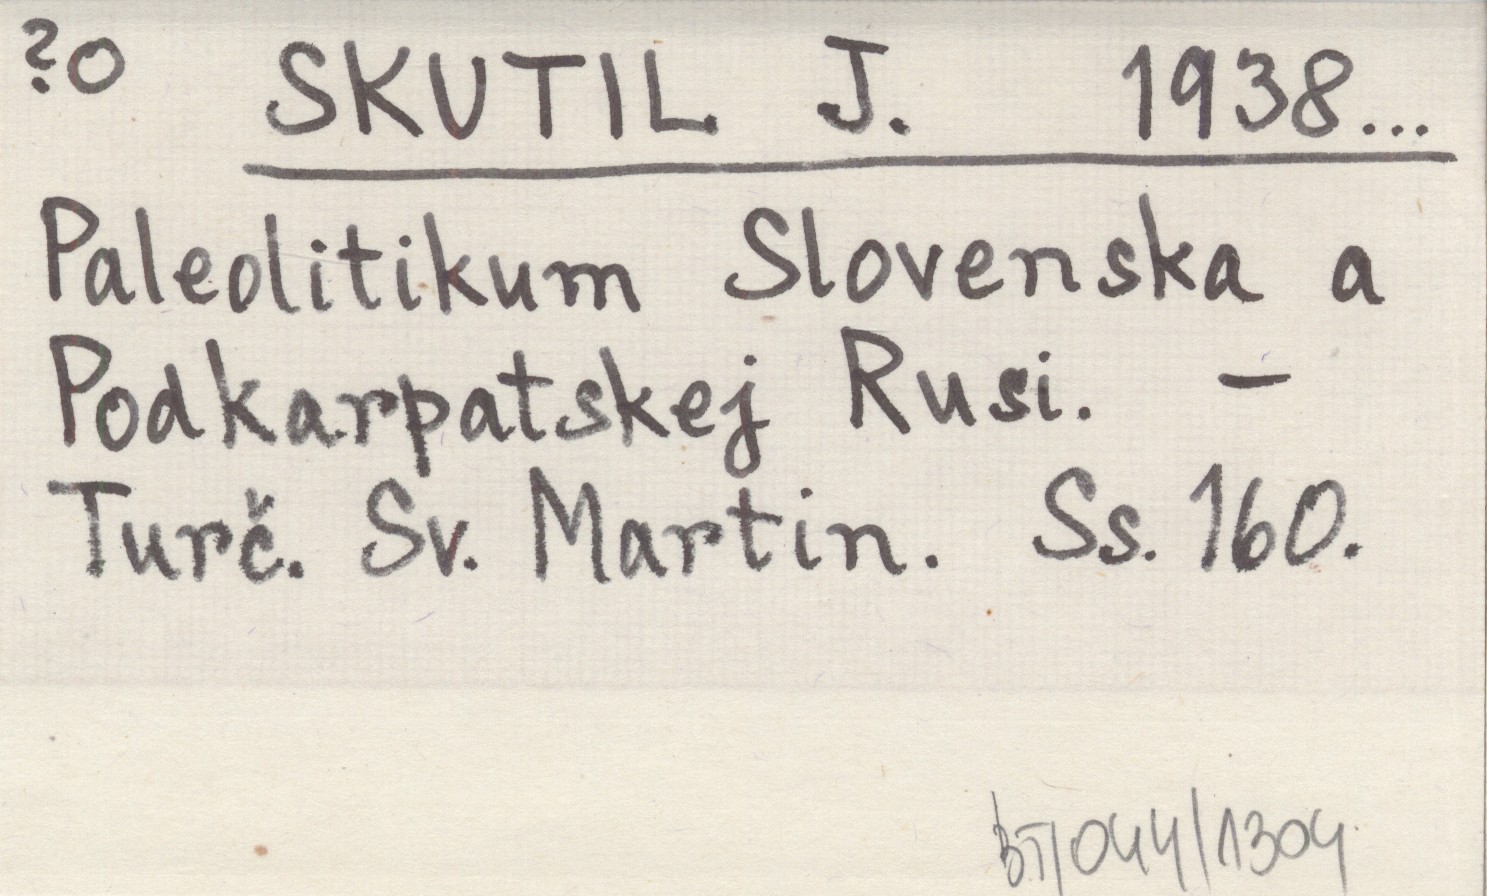 ?o SKUTIL J. 1938...
Paleolitikum Slovenska a
Podkarpatskej Rusi. –
Turč. Sv. Martin. Ss. 160.
BT/044/1304